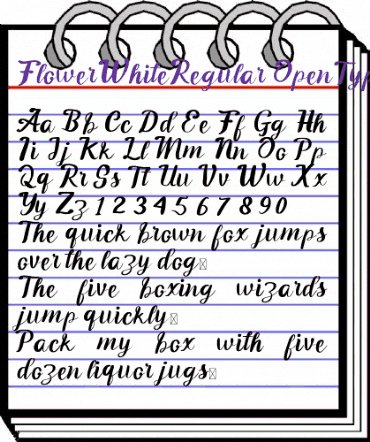 FlowerWhiteRegular OpenTyp
Aa Bb Cc Dd Ee Ff Gg Hh
Ii Jj Kk Ll Mm Nn Oo Pp
Qq Rr Ss Tt Uu Vv Ww Xx
Yy Zz 1 2 3 4 5 6 7 8 9 0
The quick brown fox jumps
over the lazy dog
The five boxing wizards
jump quickly
Pack my box with five
dozen liquor jugs